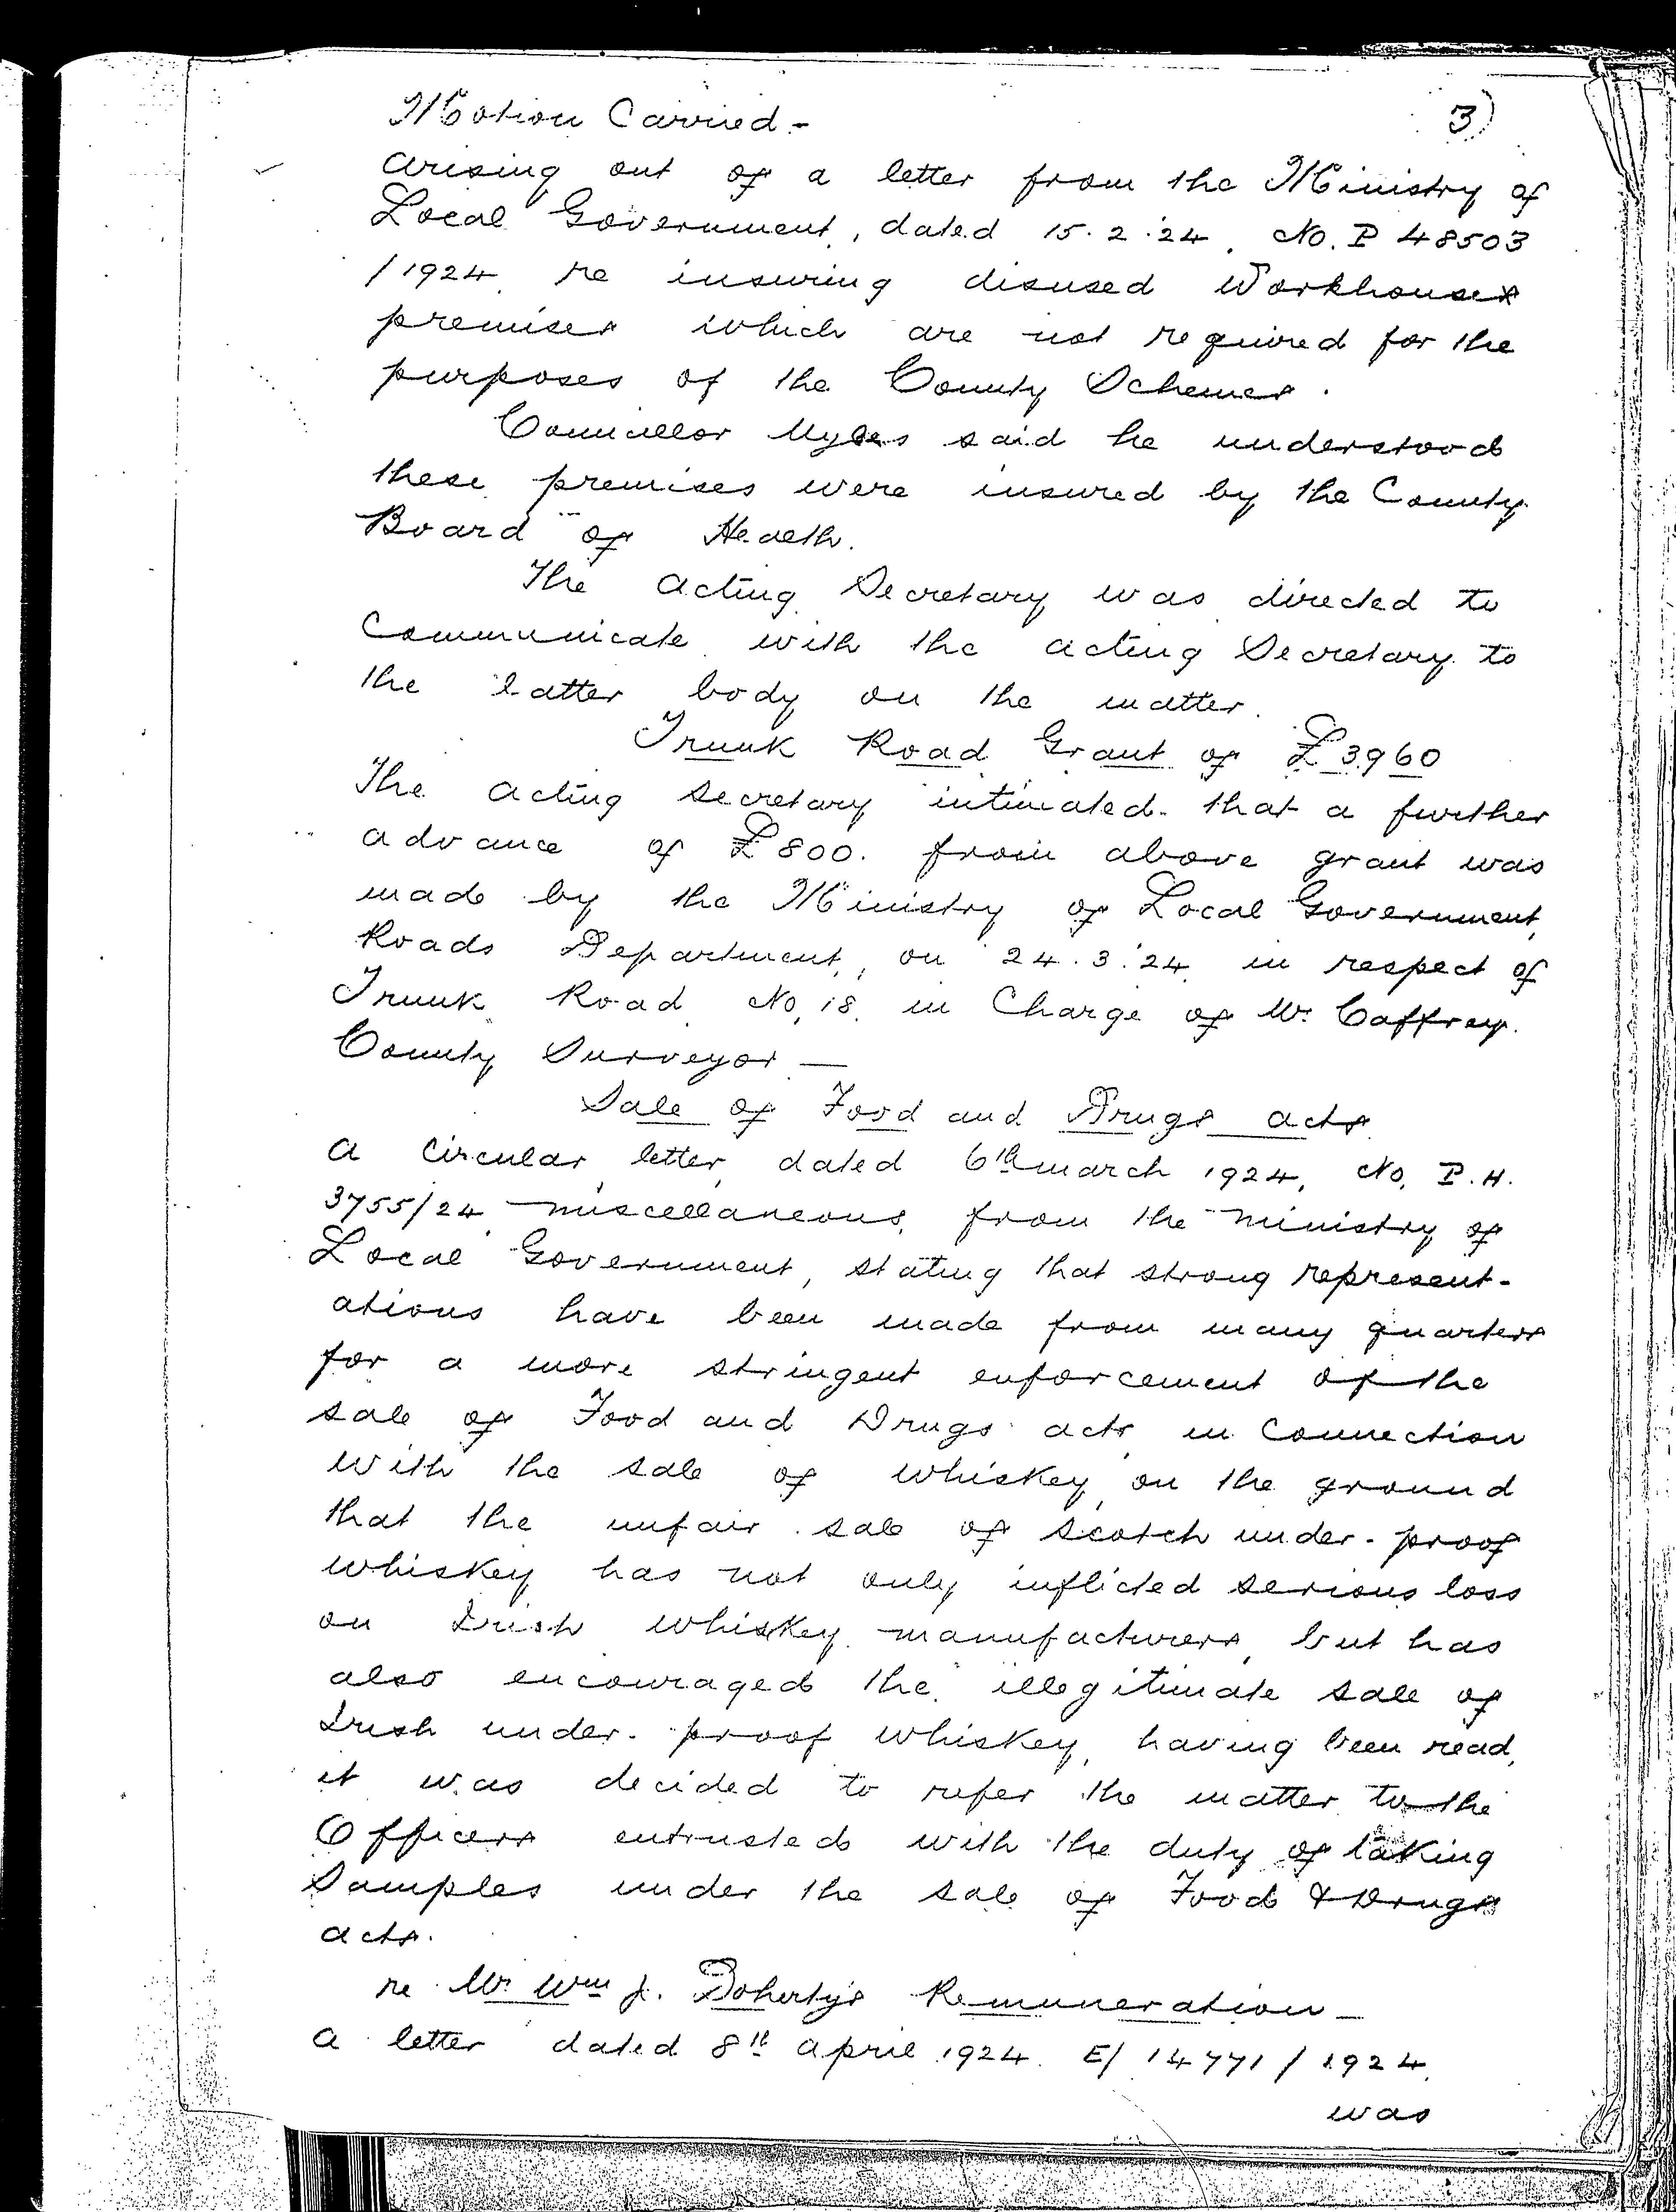 Motion Carried.-
3)
arising out of a letter from the Ministry of
Local Government, dated 15.2.24, No. P 48503
/1924, re insuring disused Workhouse
premises which are not required for the
purposes of the County Schemes.
Councillor Myles said he understood
these premises were insured by the County
Board of Health.
The acting Secretary was directed to
Communicate with the acting Secretary to
the latter body on the matter.
Trunk Road Grant of £3960
The acting secretary intimated that a further
advance of £800. from above grant was
made by the Ministry of Local Government,
Roads Department, on 24.3.24 in respect of
Trunk Road No, 18, in Charge of Mr. Caffrey.
County Surveyor —
Sale of Food and Drugs acts
a Circular letter, dated 6th march 1924, No. P.H.
3755/24 miscellaneous, from the ministry of
Local Government, stating that strong represent-
ations have been made from many quarters
for a more stringent enforcement of the
sale of Food and Drugs acts in Connection
with the sale of whiskey, on the ground
that the unfair sale of scotch under-proof
whiskey has not only inflicted serious loss
on Irish whiskey manufacturers, but has
also encouraged the illegitimate sale of
Irish under-proof whiskey, having been read,
it was decided to refer the matter to the
Officers entrusted with the duty of taking
Samples under the sale of Food & Drugs
acts.
re Mr. Wm J. Doherty's Remuneration —
a letter dated 8th april 1924. E/ 14771 / 1924,
was